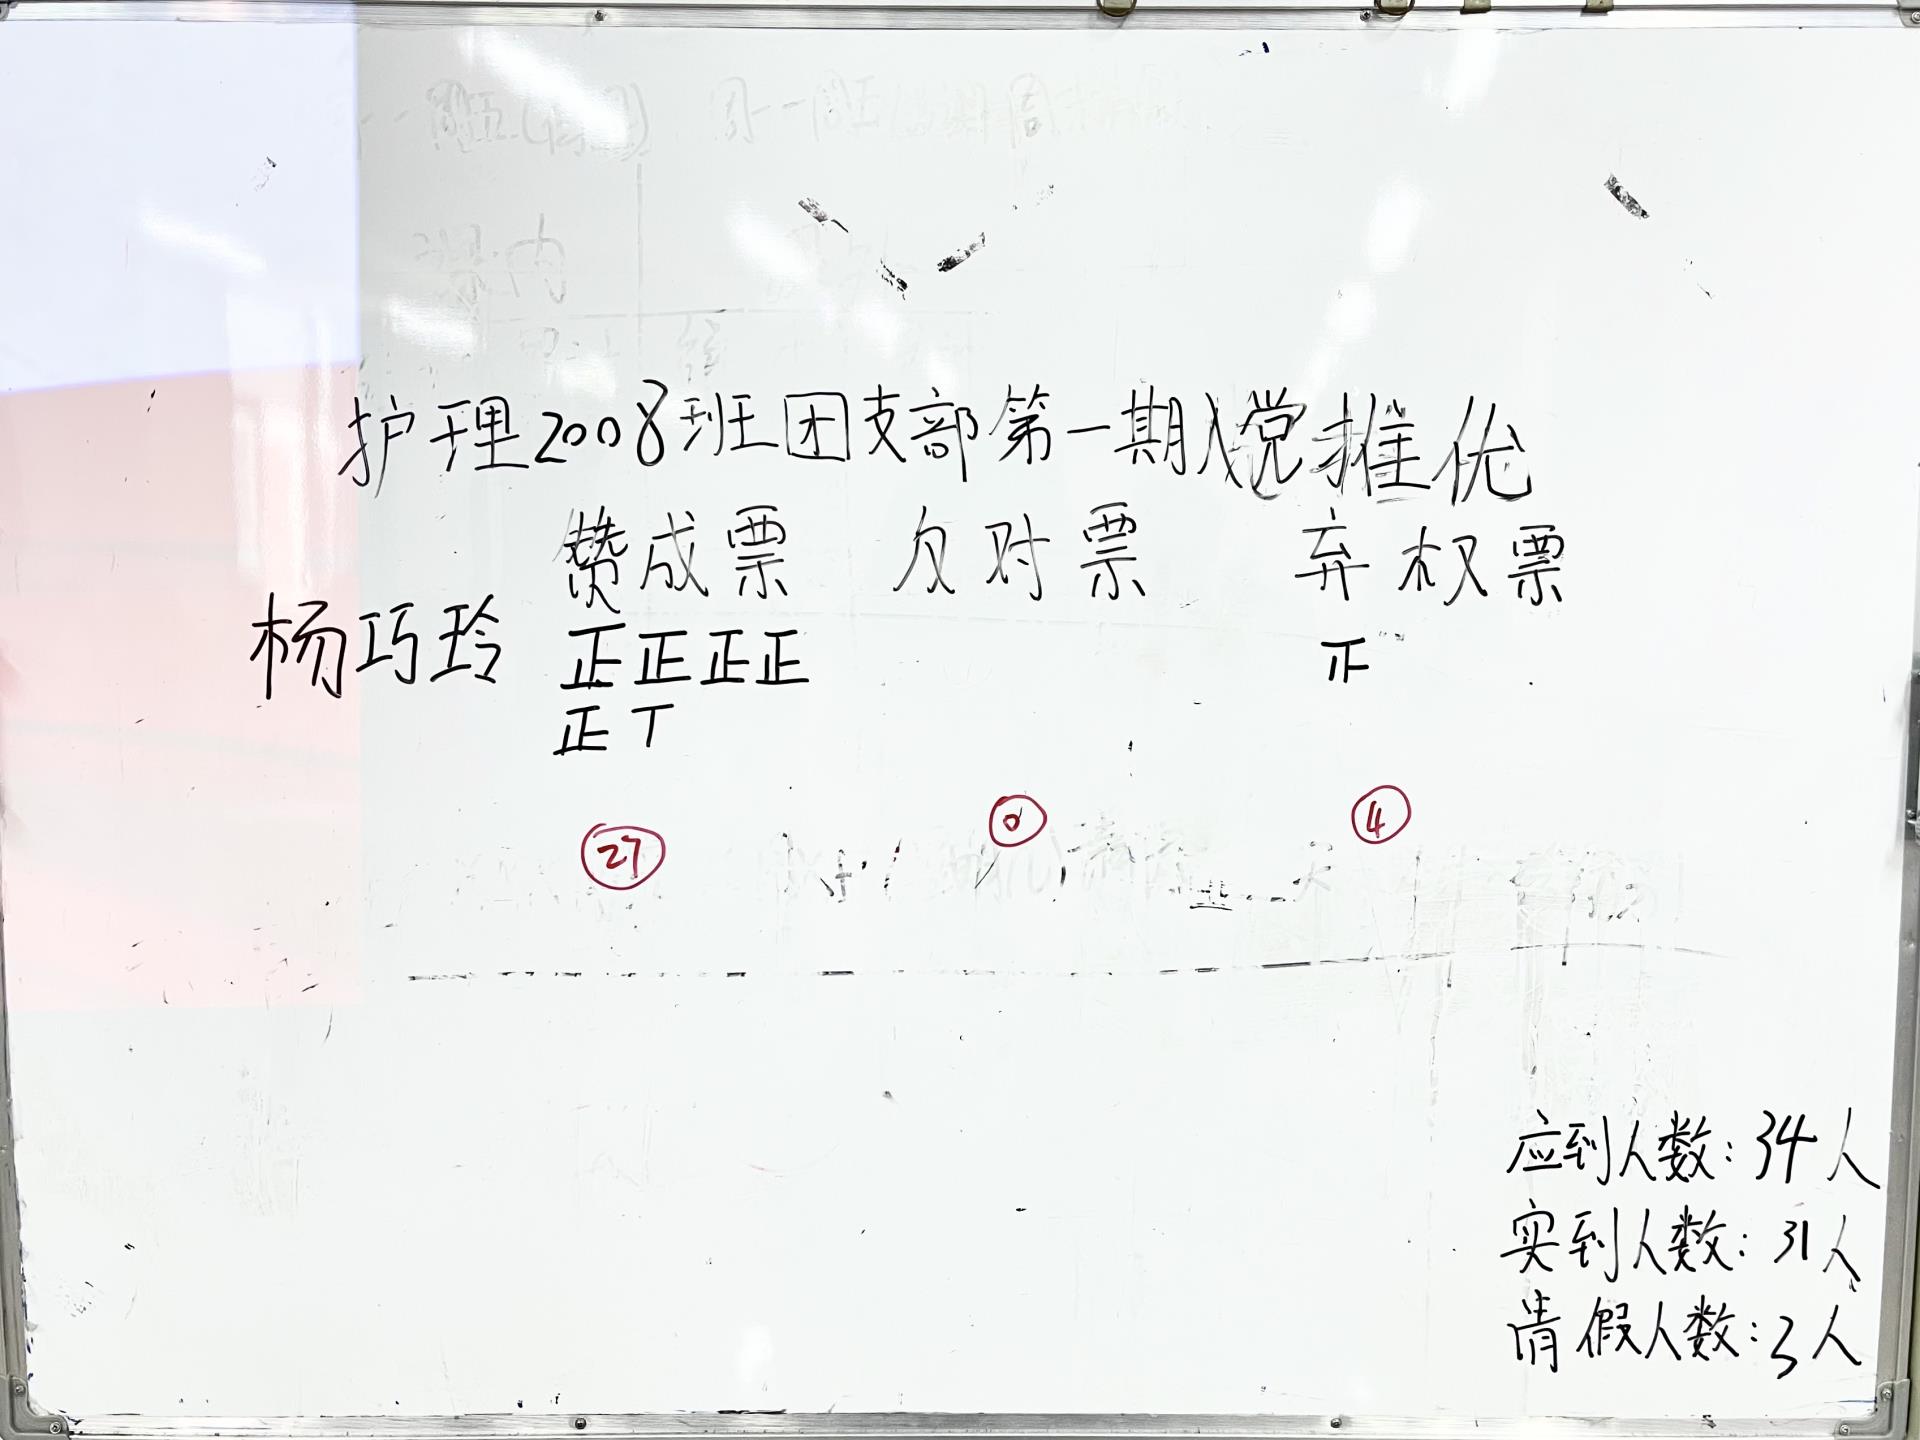 护理2008班团支部第一期入党推优
赞成票 反对票 弃权票
杨巧玲 正正正正 正
正丅
27 0 4
应到人数：34人
实到人数：31人
请假人数：3人